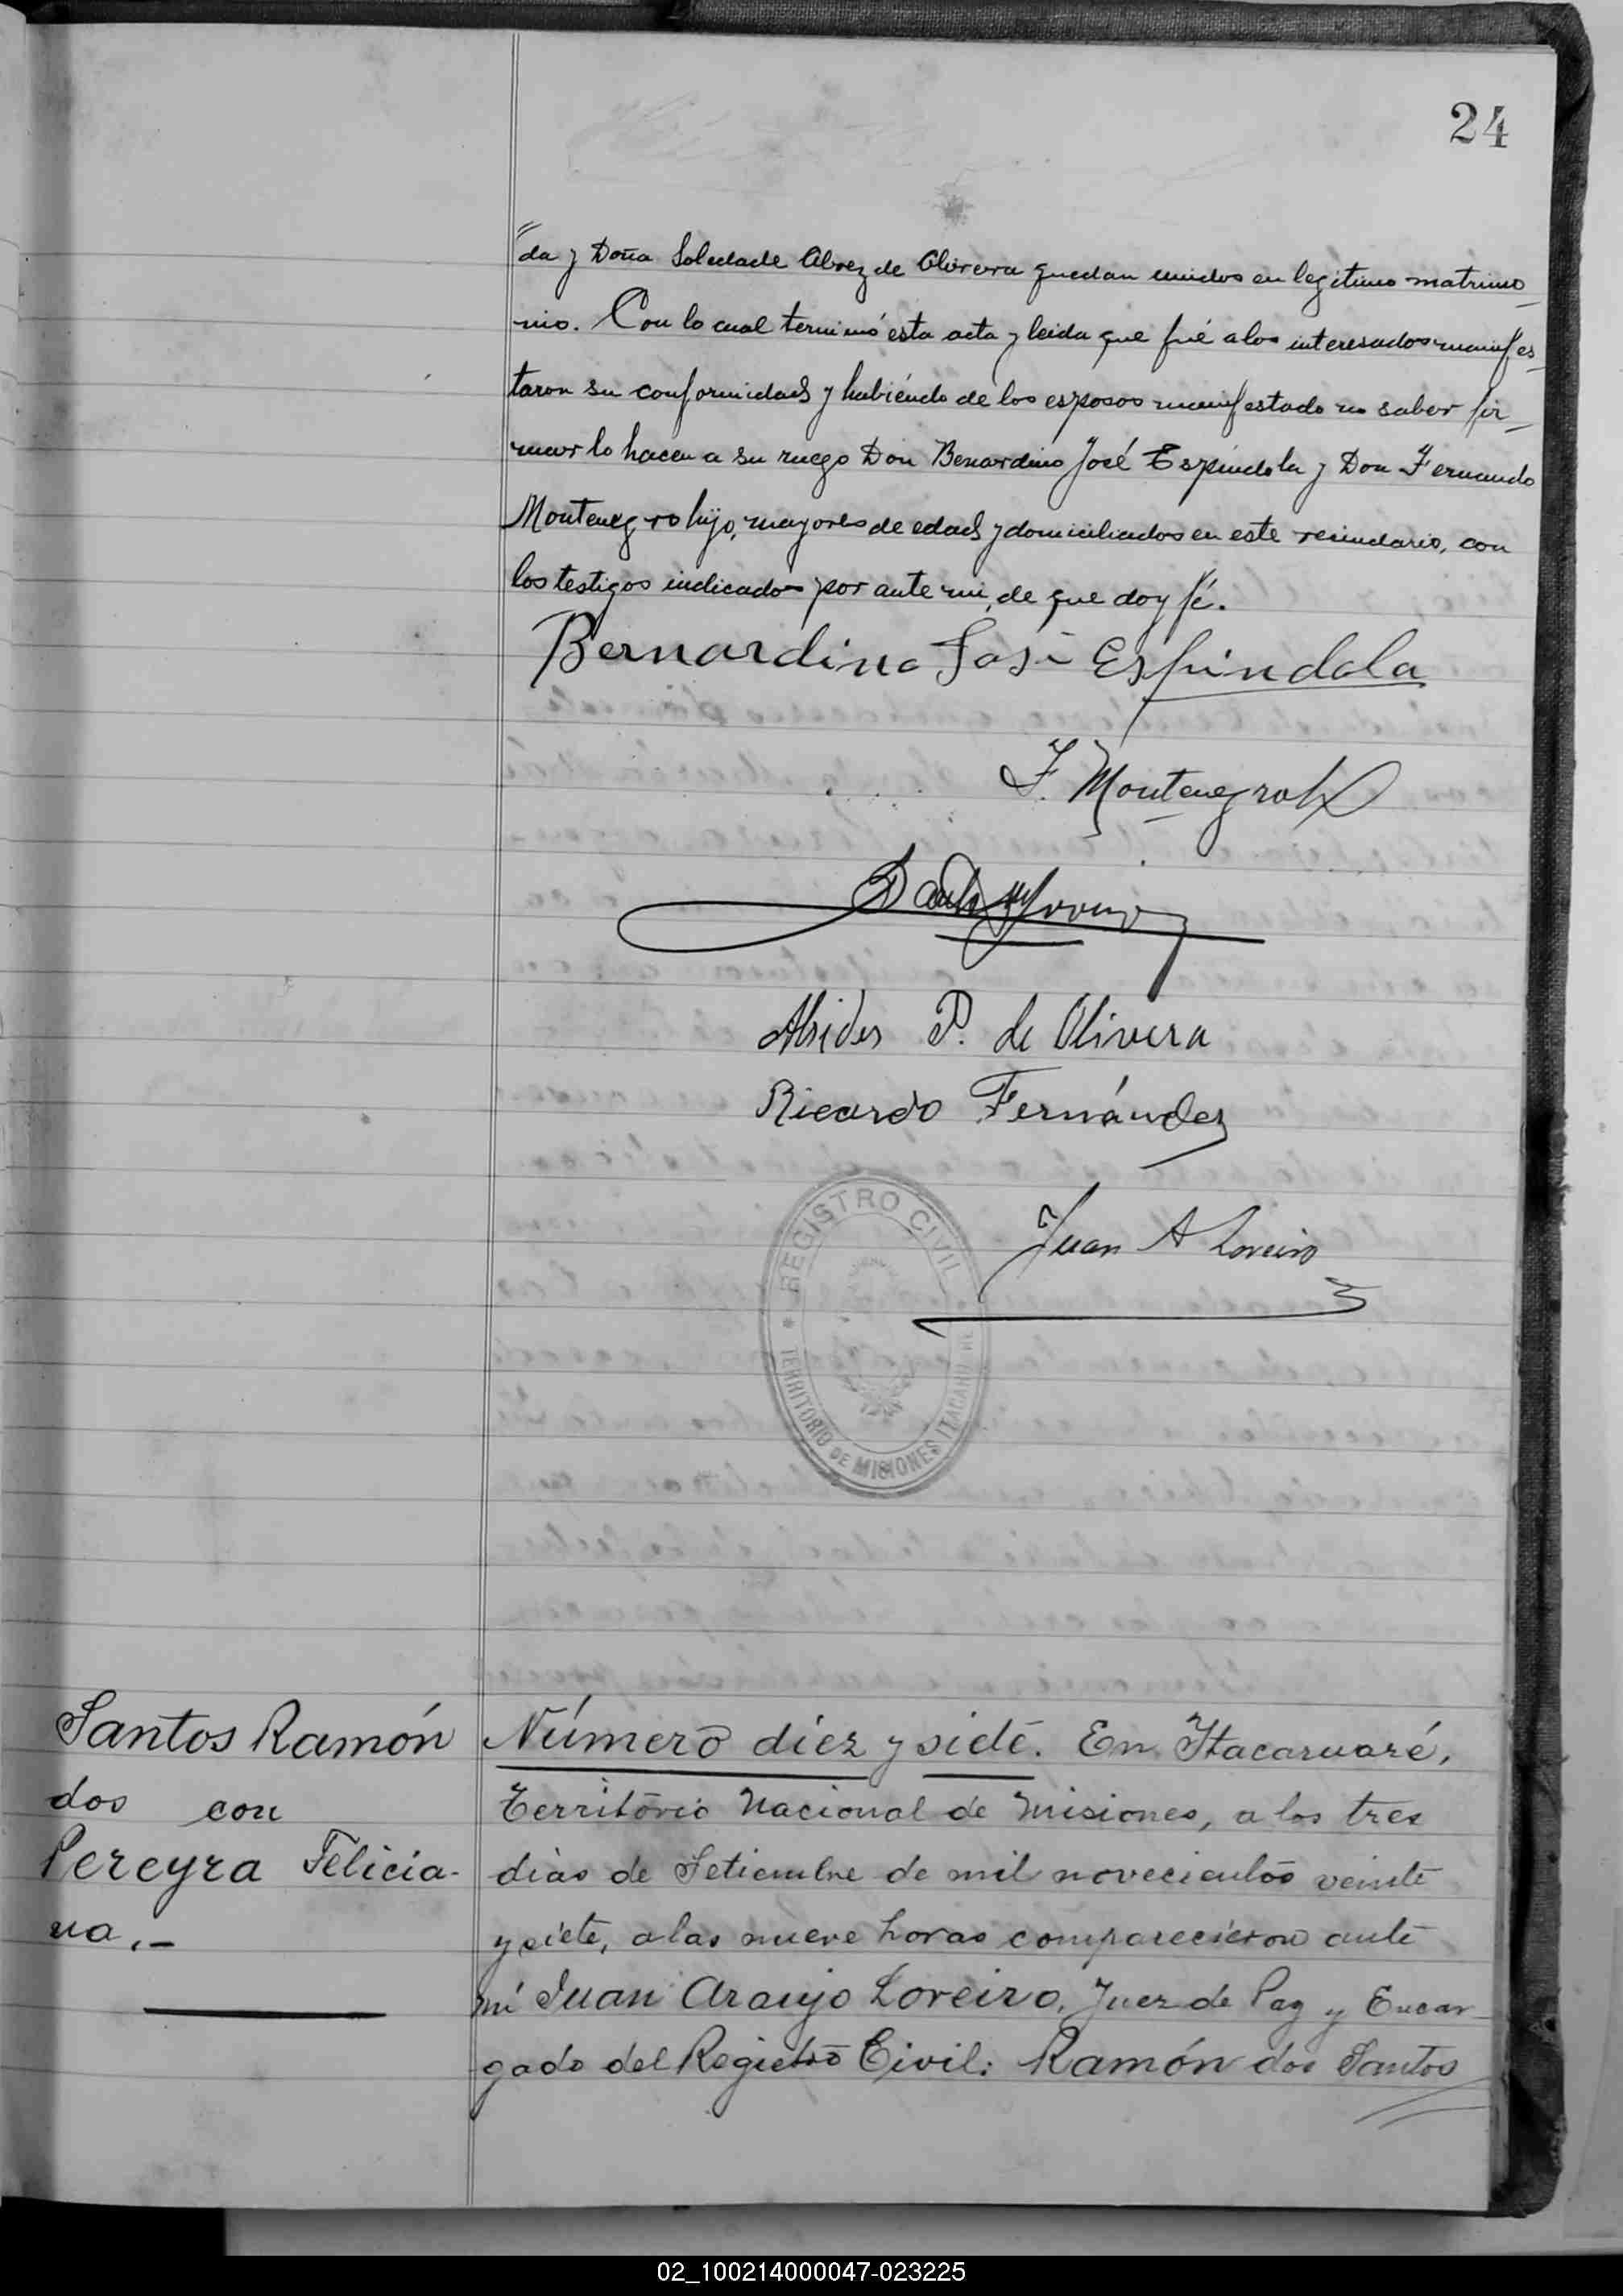 24
da y Doña Soledade Alvez de Olivera quedan unidos en legitimo matrimo
nio. Con lo cual terminó esta acta y leida que fué a los interesados manifes
taron su conformidad y habiéndo de los esposos manifestado no saber fir
mar lo hacen a su ruego Don Bernardino José Espindola y Don Fernando
Montenegro hijo, mayores de edad y domiciliados en este vecindario, con
los testigos indicados por ante mi, de que doy fé.
Bernardino José Espindola
F. Montenegro h
Alsides P. de Olivera
Ricardo Fernández
Juan A Loreiro
REGISTRO CIVIL
TERRITORIO DE MISIONES ITACARUARE
Santos Ramón
dos con
Pereyra Felicia-
na.-
Número diez y siete. En Itacaruaré,
Territorio Nacional de Misiones, a los tres
dias de Setiembre de mil novecientos veinte
y siete, a las nueve horas comparecieron ante
mi Juan Araujo Loreiro, Juez de Paz y Encar
gado del Registro Civil: Ramón dos Santos
02_100214000047-023225